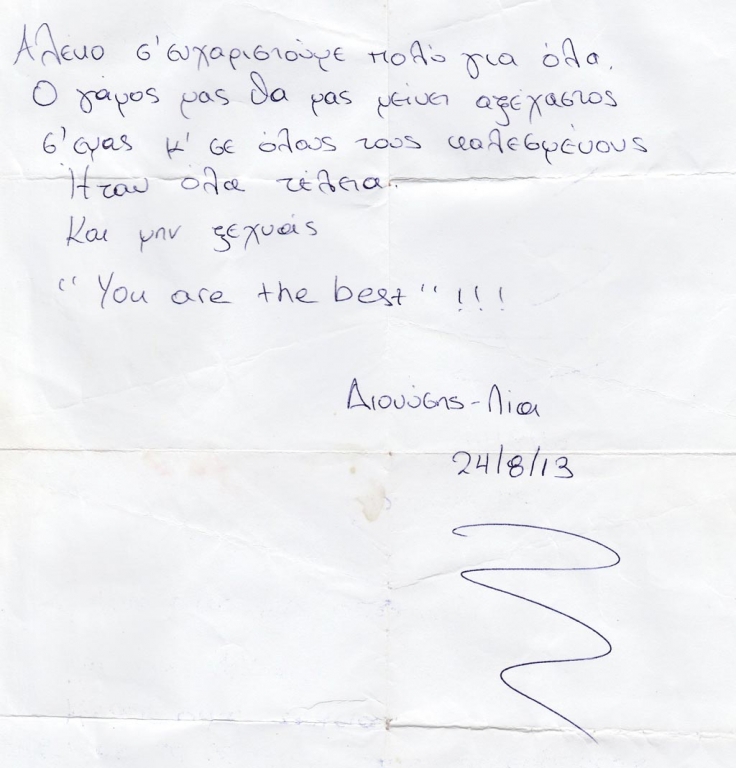 Αλέκο σ'ευχαριστούμε πολύ για όλα.
Ο γάμος μας θα μας μείνει αξέχαστος
σ'εμας κ' σε όλους τους καλεσμένους
Ήταν όλα τέλεια.
Και μην ξεχνάς
"You are the best"!!!
Διονύσης-Λία
24/8/13